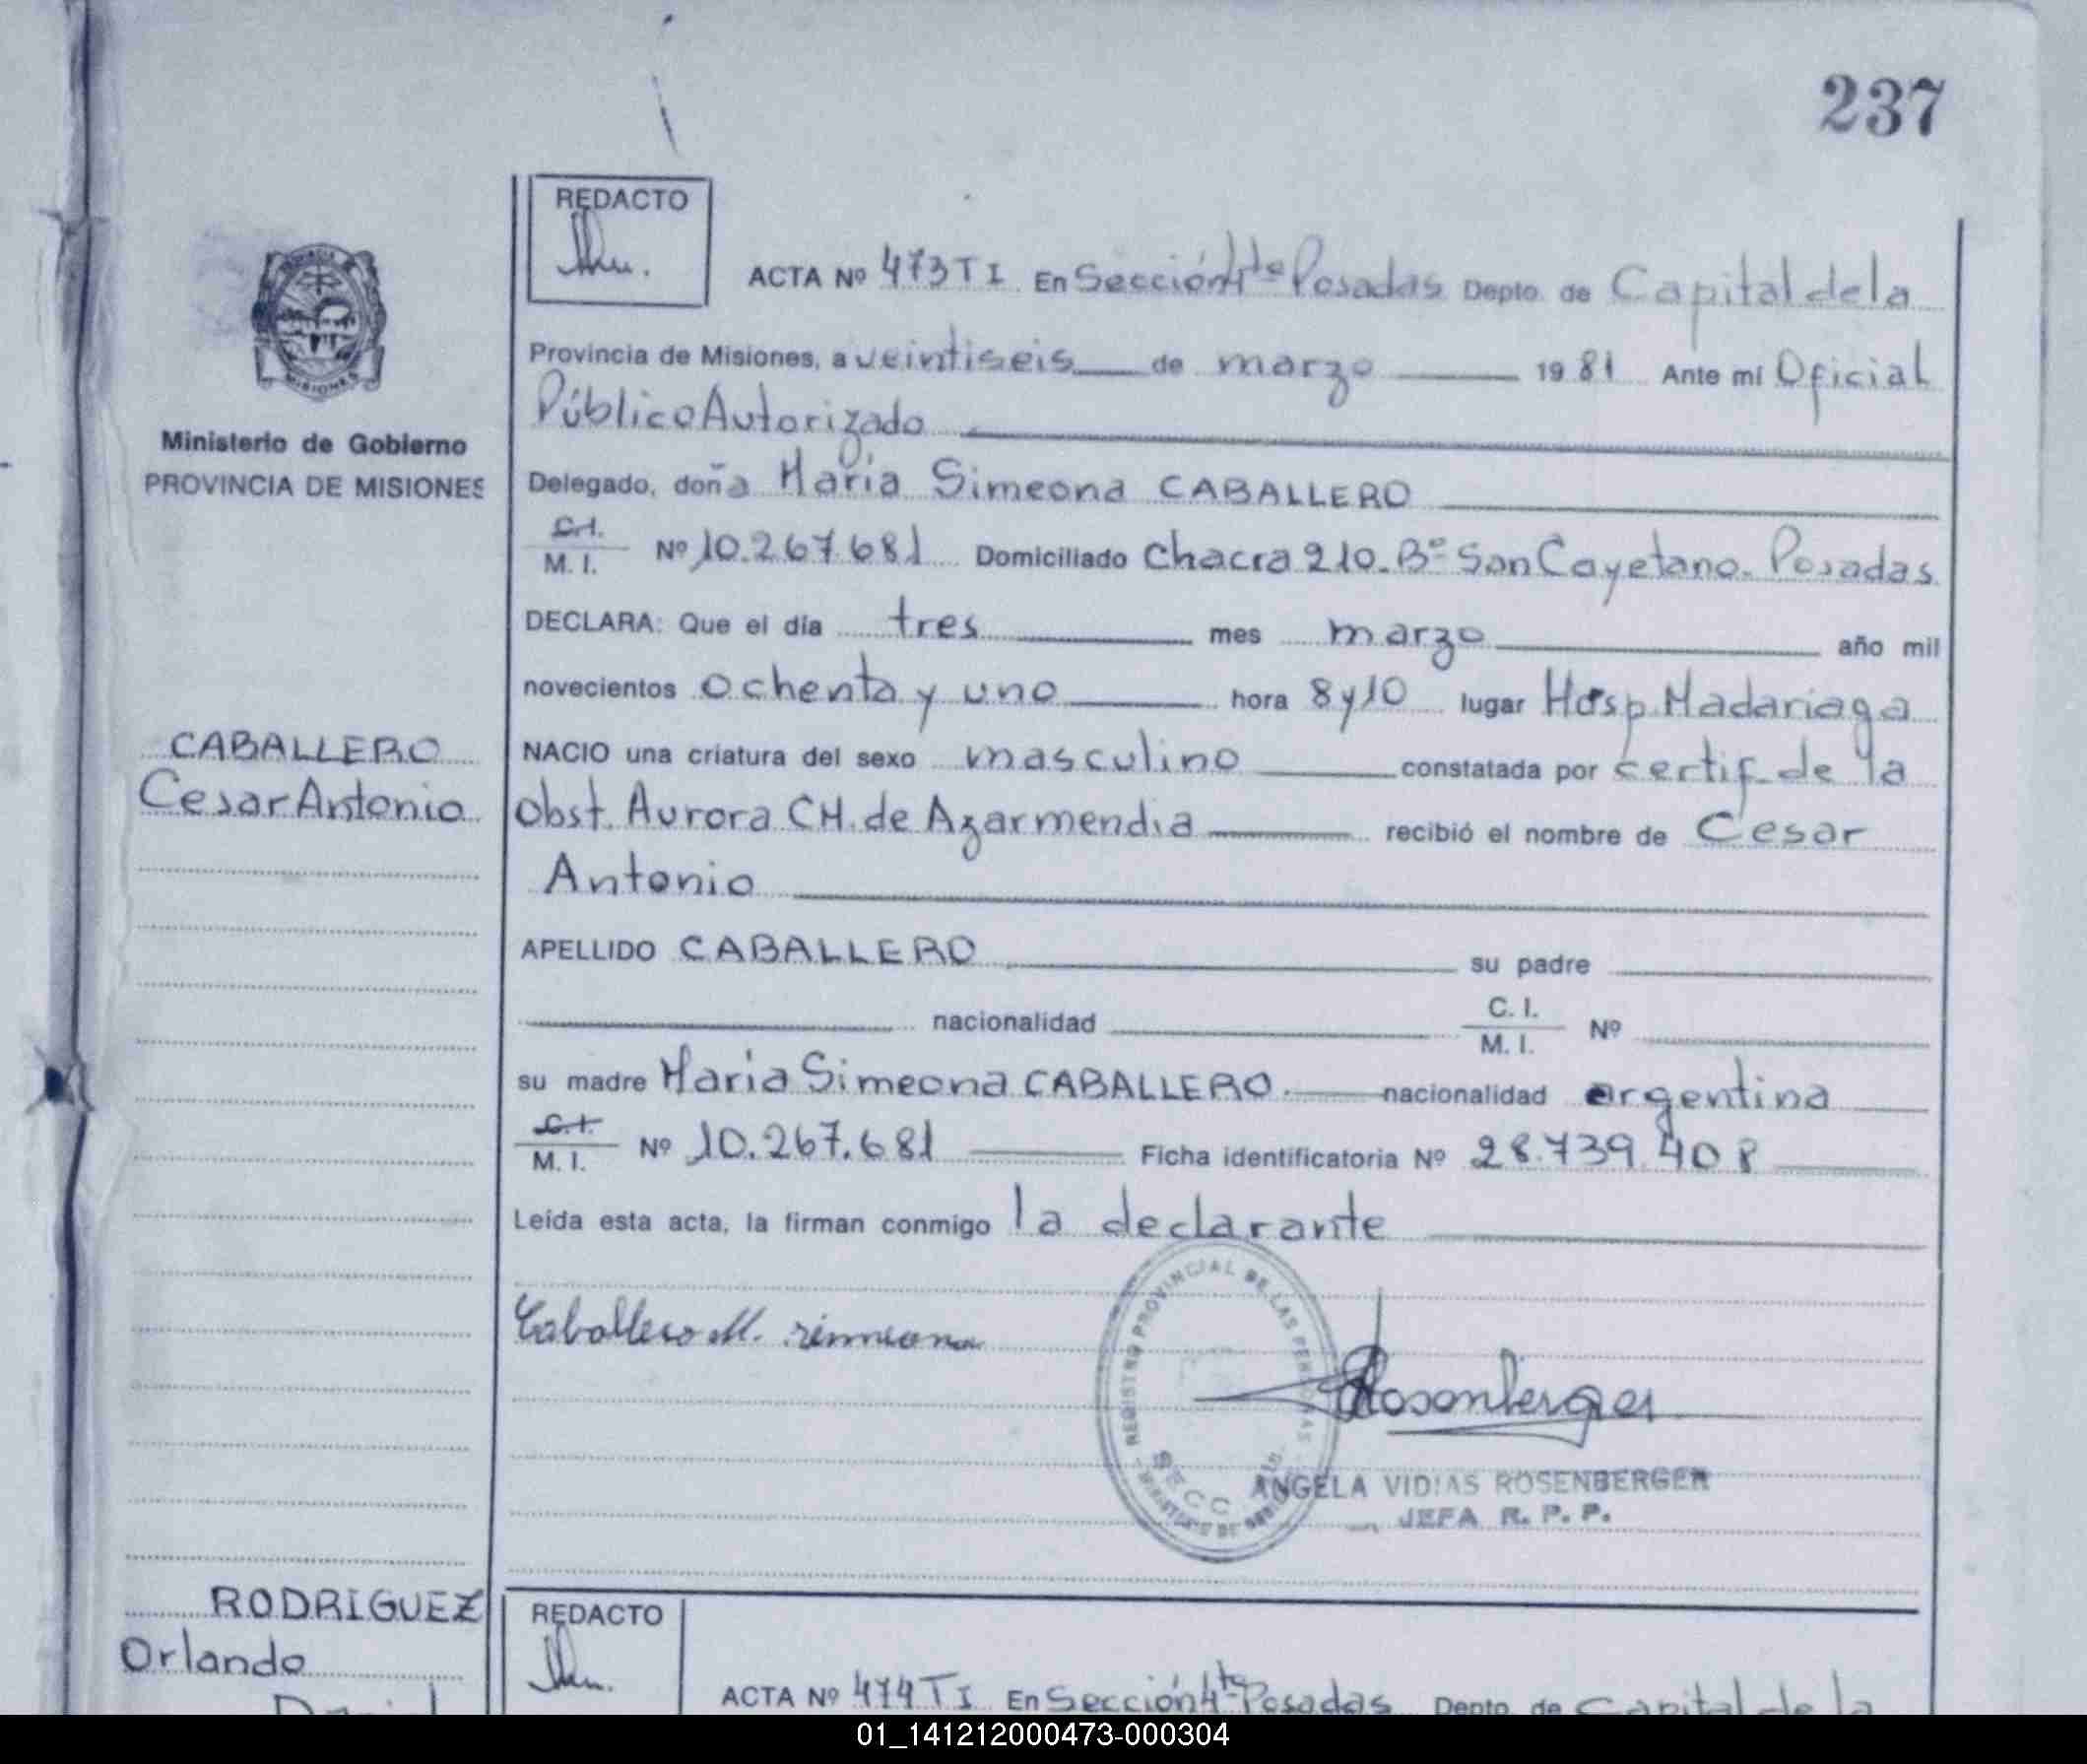 237
REDACTO
ACTA Nº 473 T I En Sección 4ta Posadas Depto. de Capital de la
Provincia de Misiones, a veintiseis de marzo 1981 Ante mí Oficial
Público Autorizado
Ministerio de Gobierno
PROVINCIA DE MISIONES
Delegado, doña Maria Simeona CABALLERO
C.I. / M. I. Nº 10.267.681 Domiciliado Chacra 210. Bº San Cayetano. Posadas
DECLARA: Que el día tres mes marzo año mil
novecientos ochenta y uno hora 8 y 10 lugar Hosp. Madariaga
CABALLERO
Cesar Antonio
NACIO una criatura del sexo masculino constatada por certif. de la
Obst. Aurora CH. de Azarmendia recibió el nombre de Cesar
Antonio
APELLIDO CABALLERO su padre
nacionalidad C. I. / M. I. Nº
su madre Maria Simeona CABALLERO. nacionalidad argentina
C.I. / M. I. Nº 10.267.681 Ficha identificatoria Nº 28.739.408
Leída esta acta, la firman conmigo la declarante
Caballero M. simeona
REGISTRO PROVINCIAL DE LAS PERSONAS
SECC
Rosenberger
ANGELA VIDIAS ROSENBERGER
JEFA R. P. P.
RODRIGUEZ
Orlando
REDACTO
ACTA Nº 474 T I En Sección 4ta Posadas Depto. de Capital de la
01_141212000473-000304